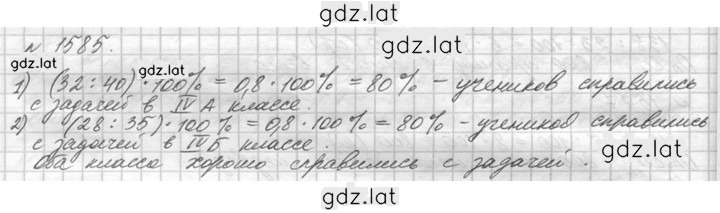 gdz.lat
№ 1585.
gdz.lat
1) (32 : 40) · 100% = 0,8 · 100% = 80% - учеников справились
с задачей в IV А классе.
2) (28 : 35) · 100% = 0,8 · 100% = 80% - учеников справились
с задачей в IV Б классе.
gdz.lat
Оба класса хорошо справились с задачей.
gdz.lat